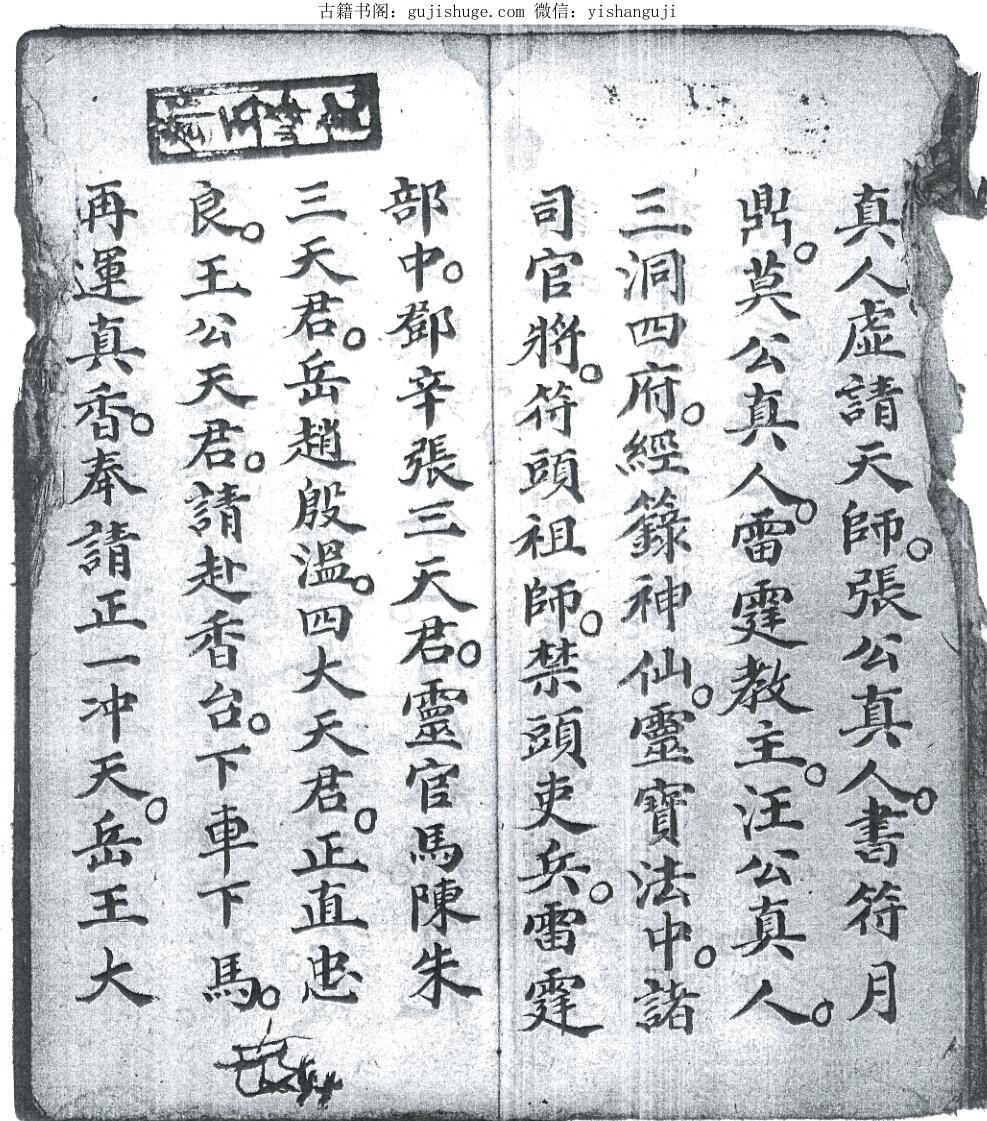 古籍书阁：gujishuge.com 微信：yishanguji
真人虛請天師。張公真人。書符月
鼎。莫公真人。雷霆教主。汪公真人。
三洞四府。經籙神仙。靈寶法中。諸
司官將。符頭祖師。禁頭吏兵。雷霆
部中。鄧辛張三天君。靈官馬陳朱
三天君。岳趙殷溫。四大天君。正直忠
良。王公天君。請赴香台。下車下馬。
再運真香。奉請正一冲天。岳王大